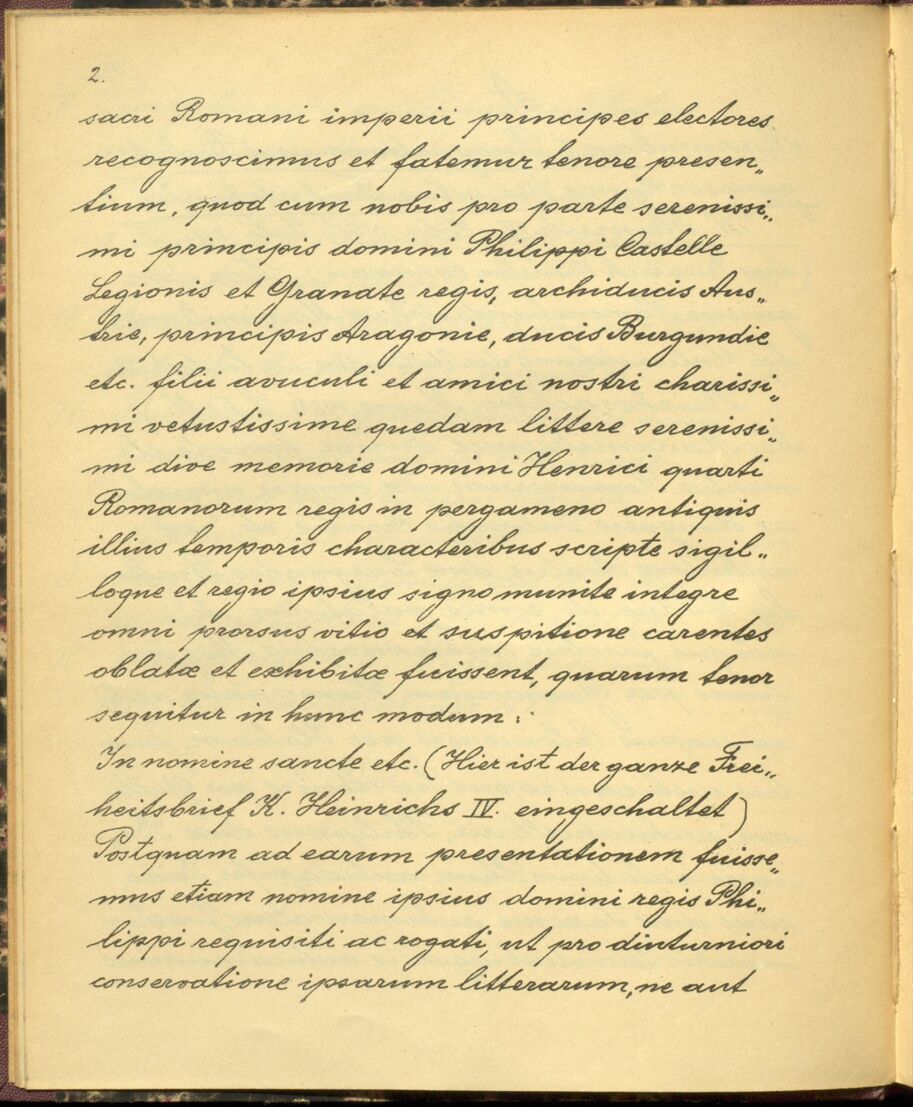 2.
sacri Romani imperii principes electores
recognoscimus et fatemur tenore presen„
tium, quod cum nobis pro parte serenissi„
mi principis domini Philippi Castelle
Legionis et Granate regis, archiducis Aus„
trie, principis Aragonie, ducis Burgundie
etc. filii avuculi et amici nostri charissi„
mi vetustissime quedam littere serenissi„
mi dive memorie domini Henrici quarti
Romanorum regis in pergameno antiquis
illius temporis characteribus scripte sigil„
loque et regio ipsius signo munite integre
omni prorsus vitio et suspitione carentes
oblatæ et exhibitæ fuissent, quarum tenor
sequitur in hunc modum:
In nomine sancte etc. (Hier ist der ganze Frei„
heitsbrief K. Heinrichs IV. eingeschaltet)
Postquam ad earum presentationem fuisse„
mus etiam nomine ipsius domini regis Phi„
lippi requisiti ac rogati, ut pro diuturniori
conservatione ipsarum litterarum, ne aut